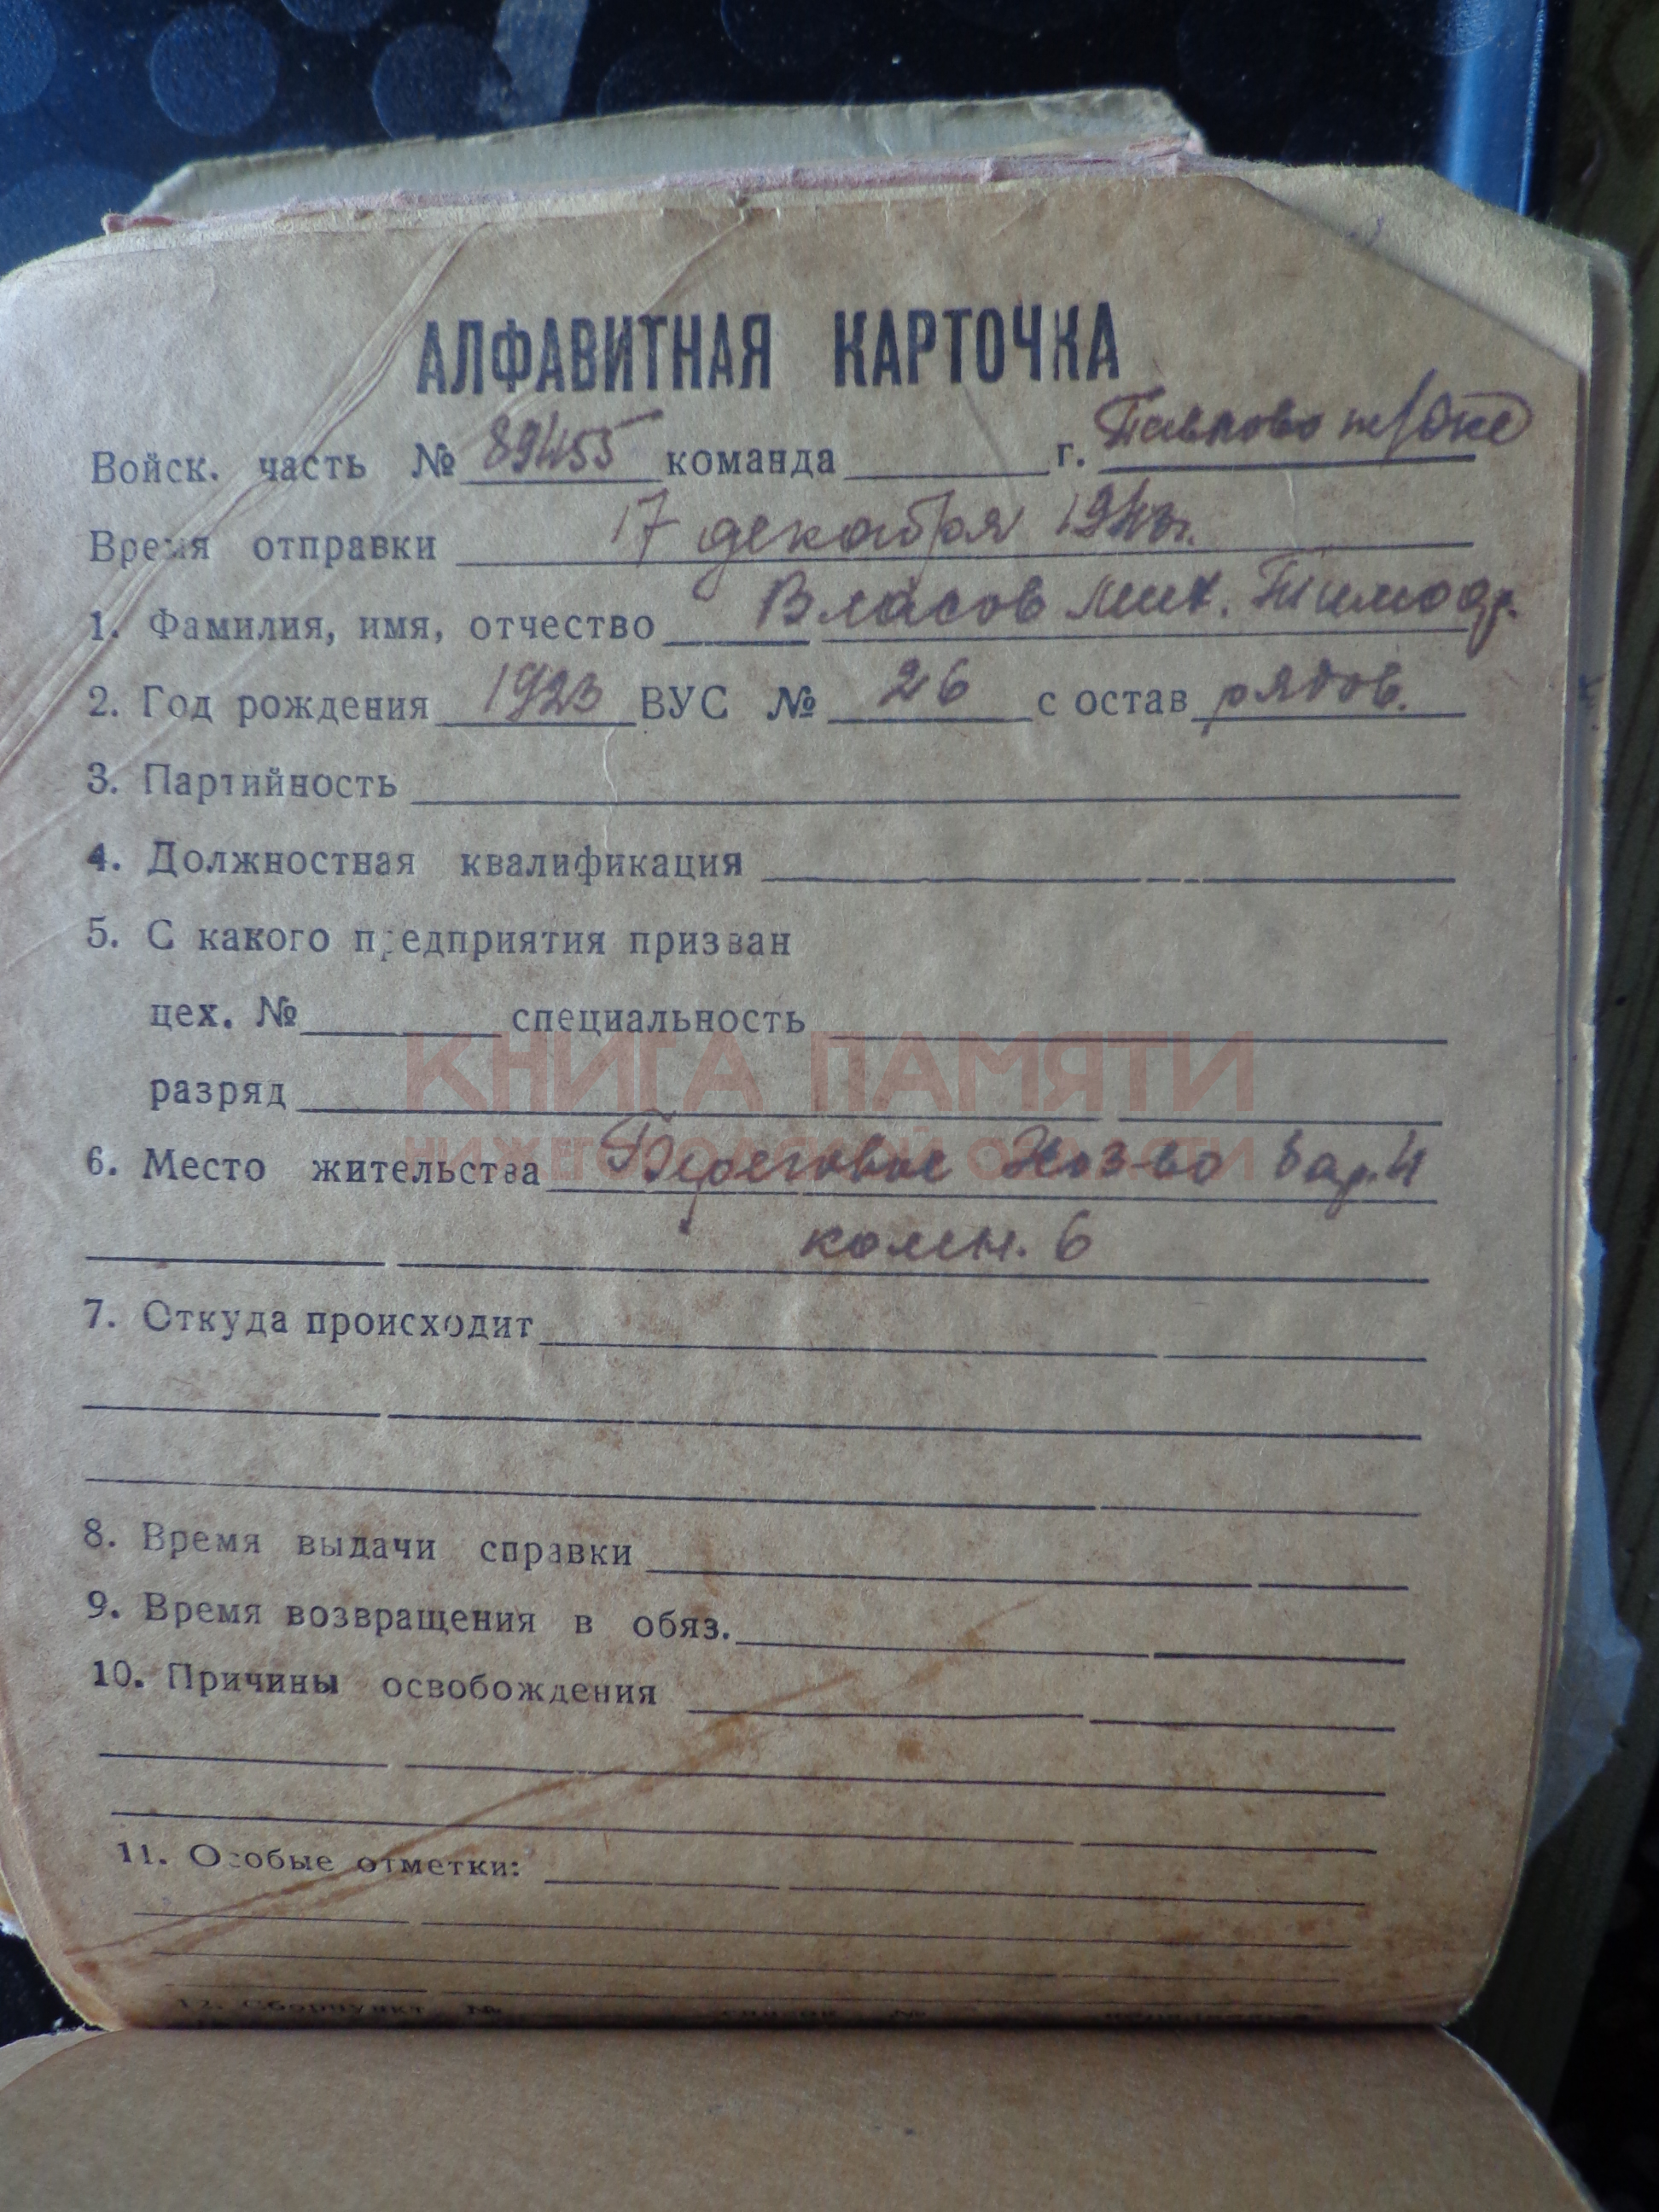 АЛФАВИТНАЯ КАРТОЧКА
Войск. часть № 89455 команда г. Павлово н/Оке
Время отправки 17 декабря 1943г.
1. Фамилия, имя, отчество Власов Мих. Тимоф.
2. Год рождения 1923 ВУС № 26 состав рядов.
3. Партийность
4. Должностная квалификация
5. С какого предприятия призван
цех. № специальность
разряд
КНИГА ПАМЯТИ
НИЖЕГОРОДСКОЙ ОБЛАСТИ
6. Место жительства Береговое бар. 4
комн. 6
7. Откуда происходит
8. Время выдачи справки
9. Время возвращения в обяз.
10. Причины освобождения
11. Особые отметки:
12. Сборпункт № список №